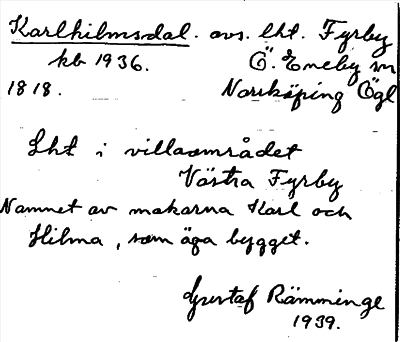 Karlhilmsdal. avs. lht. Fyrby
kb 1936. Ö. Eneby sn
1818. Norrköping Ögl
Lht i villaområdet
Västra Fyrby
Namnet av makarna Karl och
Hilma, som äga bygget.
Gustaf Rämminge
1939.